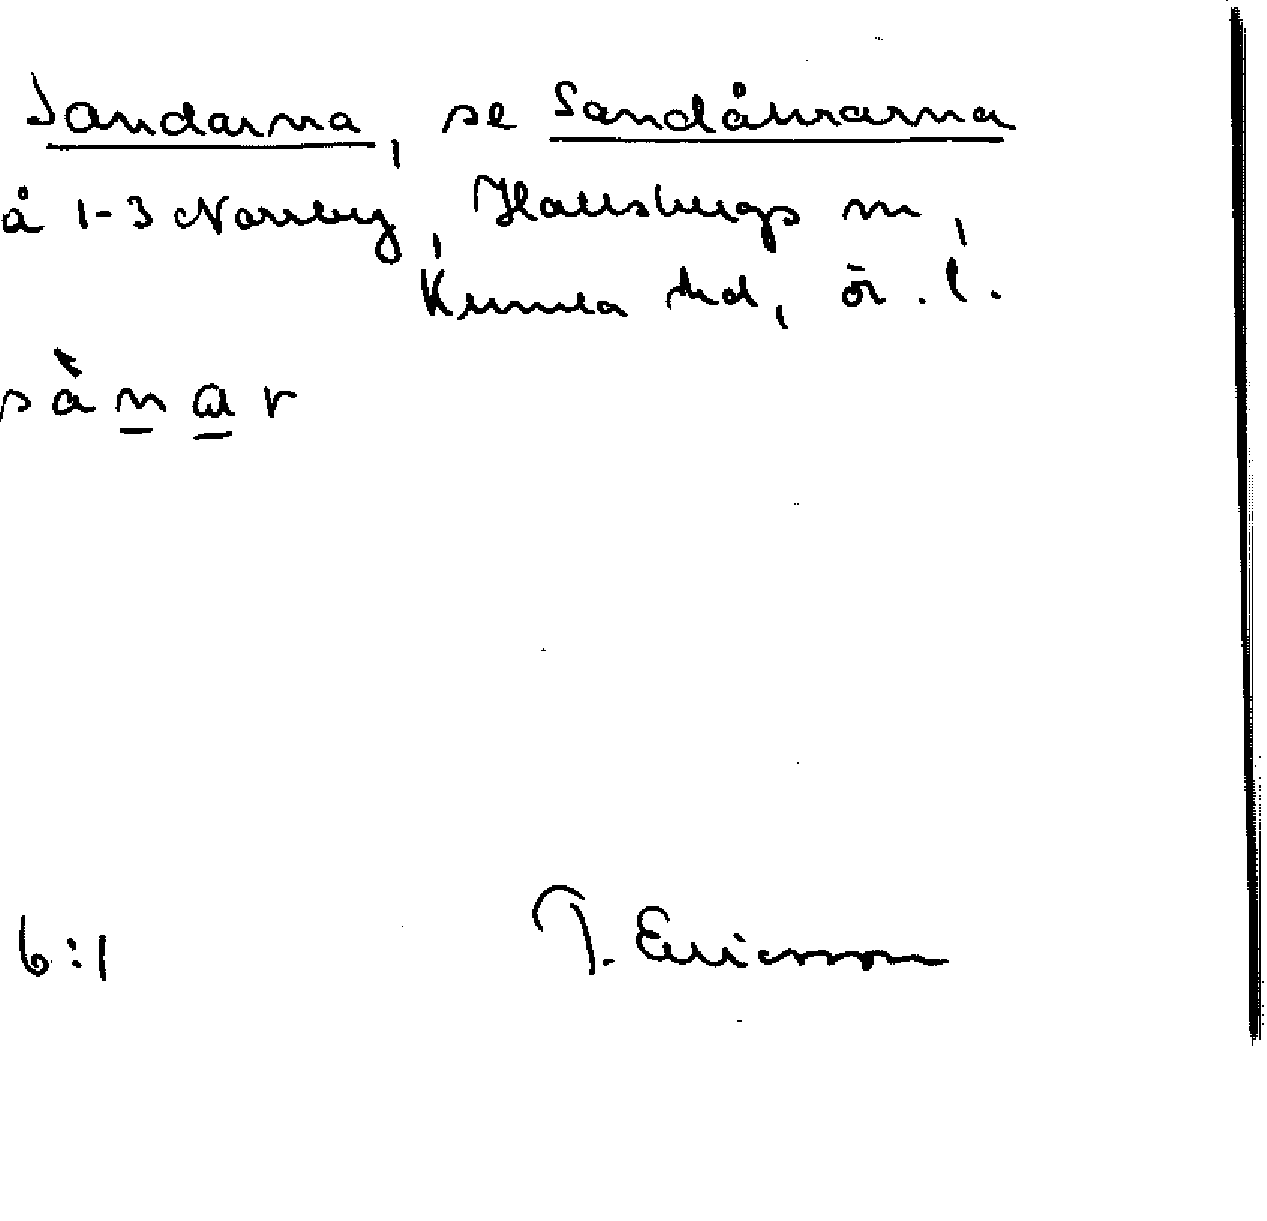 Sandarna, se Sandåkrarna
å 1-3 Norrby, Hallsbergs sn,
Kumla hd, Ör. l.
sànar
6:1
T. Ericsson